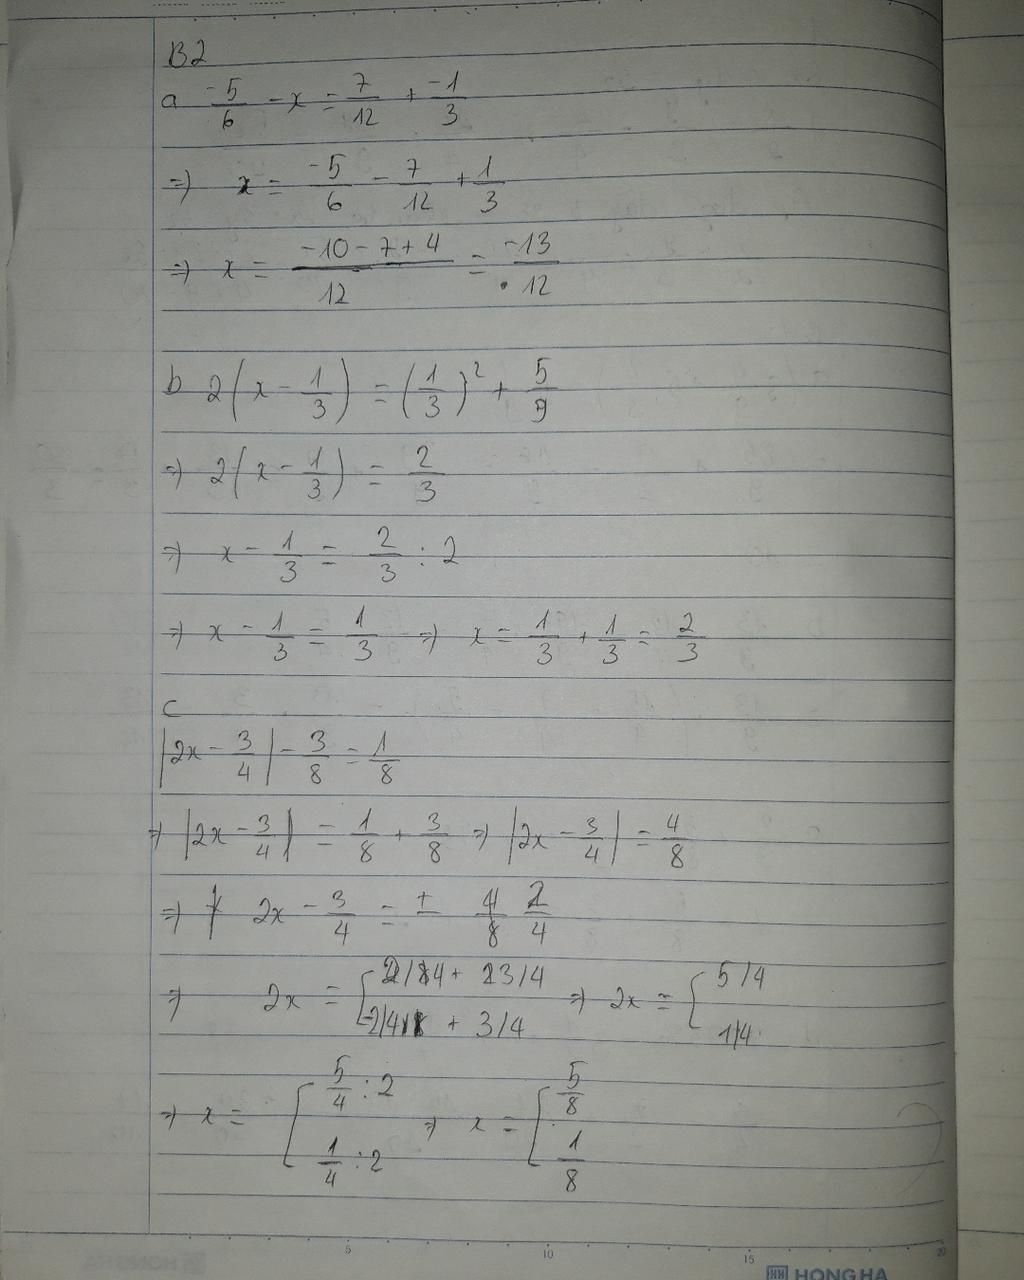 B2
a -5/6 - x = 7/12 + -1/3
=> x = -5/6 - 7/12 + 1/3
=> x = (-10 - 7 + 4)/12 = -13/12
b 2(x - 1/3) = (1/3)² + 5/9
=> 2(x - 1/3) = 2/3
=> x - 1/3 = 2/3 : 2
=> x - 1/3 = 1/3 => x = 1/3 + 1/3 = 2/3
c
|2x - 3/4| - 3/8 = 1/8
=> |2x - 3/4| = 1/8 + 3/8 => |2x - 3/4| = 4/8
=> 2x - 3/4 = ± 2/4
=> 2x = [ 2/4 + 3/4 => 2x = [ 5/4
-2/4 + 3/4 1/4
=> x = [ 5/4 : 2 => x = [ 5/8
1/4 : 2 1/8
5 10 15 20
HH HONG HA